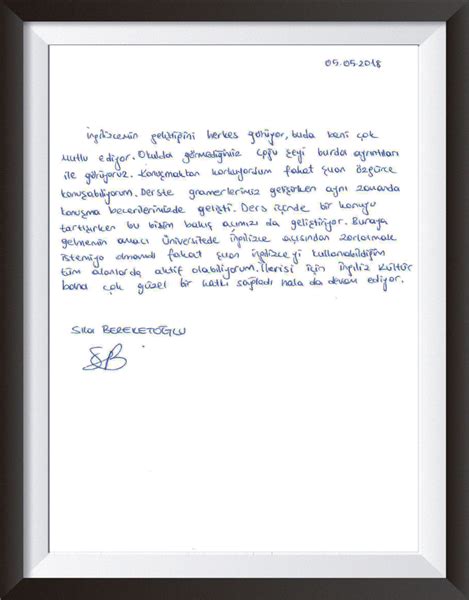 05.05.2018
İngilizcemin geliştiğini herkes görüyor, buda beni çok
mutlu ediyor. Okulda görmediğimiz çoğu şeyi burda ayrıntıları
ile görüyoruz. Konuşmaktan korkuyordum fakat şuan özgürce
konuşabiliyorum. Derste gramerlerimiz gelişirken aynı zamanda
konuşma becerilerimizde gelişti. Ders içinde bir konuyu
tartışırken bu bizim bakış açımızı da geliştiriyor. Buraya
gelmemin amacı Üniversitede İngilizce açısından zorlanmak
istemiyo olmamdı fakat şuan İngilizceyi kullanabildiğim
tüm alanlarda aktif olabiliyorum. İlerisi için İngiliz Kültür
bana çok güzel bir katkı sağladı hala da devam ediyor.
Sıla BEREKETOĞLU
SB